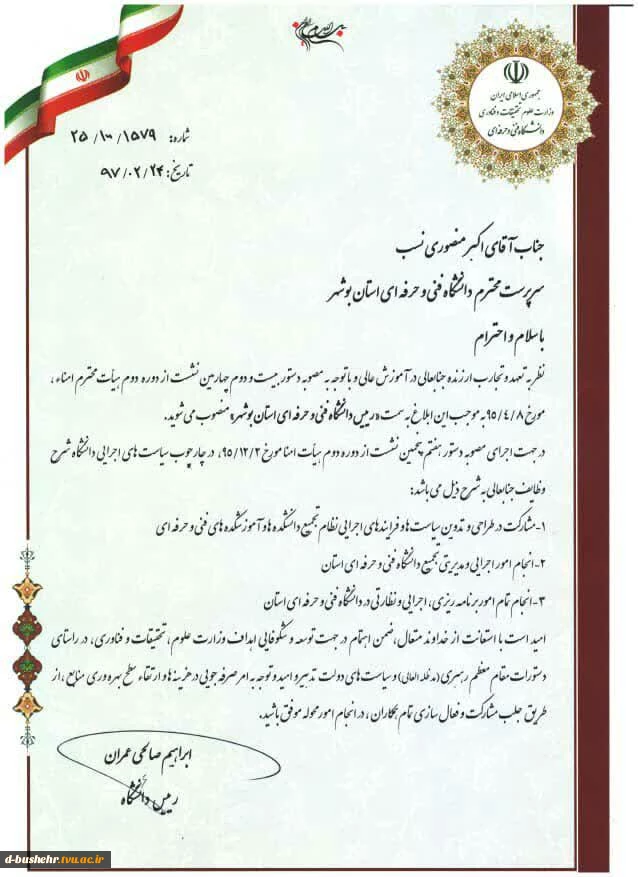 جمهوری اسلامی ایران
وزارت علوم تحقیقات و فناوری
دانشگاه فنی و حرفه ای
شماره: ۲۵/۱۰۰/۱۵۷۹
تاریخ: ۹۷/۰۲/۲۴
جناب آقای اکبر منصوری نسب
سرپرست محترم دانشگاه فنی و حرفه ای استان بوشهر
با سلام و احترام
نظر به تعهد و تجارب ارزنده جنابعالی در آموزش عالی و با توجه به مصوبه دستور بیست و دوم چهارمین نشست از دوره دوم هیأت محترم امناء،
مورخ ۹۵/۴/۸ به موجب این ابلاغ به سمت «رییس دانشگاه فنی و حرفه ای استان بوشهر» منصوب می شوید.
در جهت اجرای مصوبه دستور هفتم پنجمین نشست از دوره دوم هیأت امنا مورخ ۹۵/۱۲/۲، در چارچوب سیاست های اجرایی دانشگاه شرح
وظایف جنابعالی به شرح ذیل می باشد:
۱-مشارکت در طراحی و تدوین سیاست ها و فرایندهای اجرایی نظام تجمیع دانشکده ها و آموزشکده های فنی و حرفه ای
۲-انجام امور اجرایی و مدیریتی تجمیع دانشگاه فنی و حرفه ای استان
۳-انجام تمام امور برنامه ریزی، اجرایی و نظارتی در دانشگاه فنی و حرفه ای استان
امید است با استعانت از خداوند متعال، ضمن اهتمام در جهت توسعه و شکوفایی اهداف وزارت علوم، تحقیقات و فناوری، در راستای
دستورات مقام معظم رهبری (مدظله العالی) و سیاست های دولت تدبیر و امید و توجه به امر صرفه جویی در هزینه ها و ارتقاء سطح بهره وری منابع، از
طریق جلب مشارکت و فعال سازی تمام همکاران، در انجام امور محوله موفق باشید.
ابراهیم صالحی عمران
رییس دانشگاه
d-bushehr.tvu.ac.ir